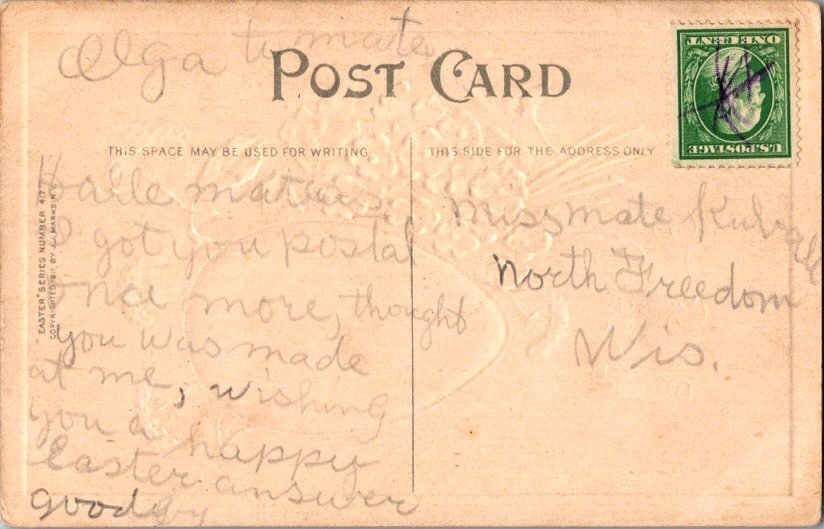 Olga to mate
POST CARD
THIS SPACE MAY BE USED FOR WRITING
THIS SIDE FOR THE ADDRESS ONLY
U.S. POSTAGE
ONE CENT
"EASTER" SERIES NUMBER 417
COPYRIGHTED 1911, BY J. MARKS N.Y.
Halle
I got you postal
once more, thought
you was made
at me, wishing
you a happy
Easter answer
goodby
Miss mate
North Freedom
Wis.